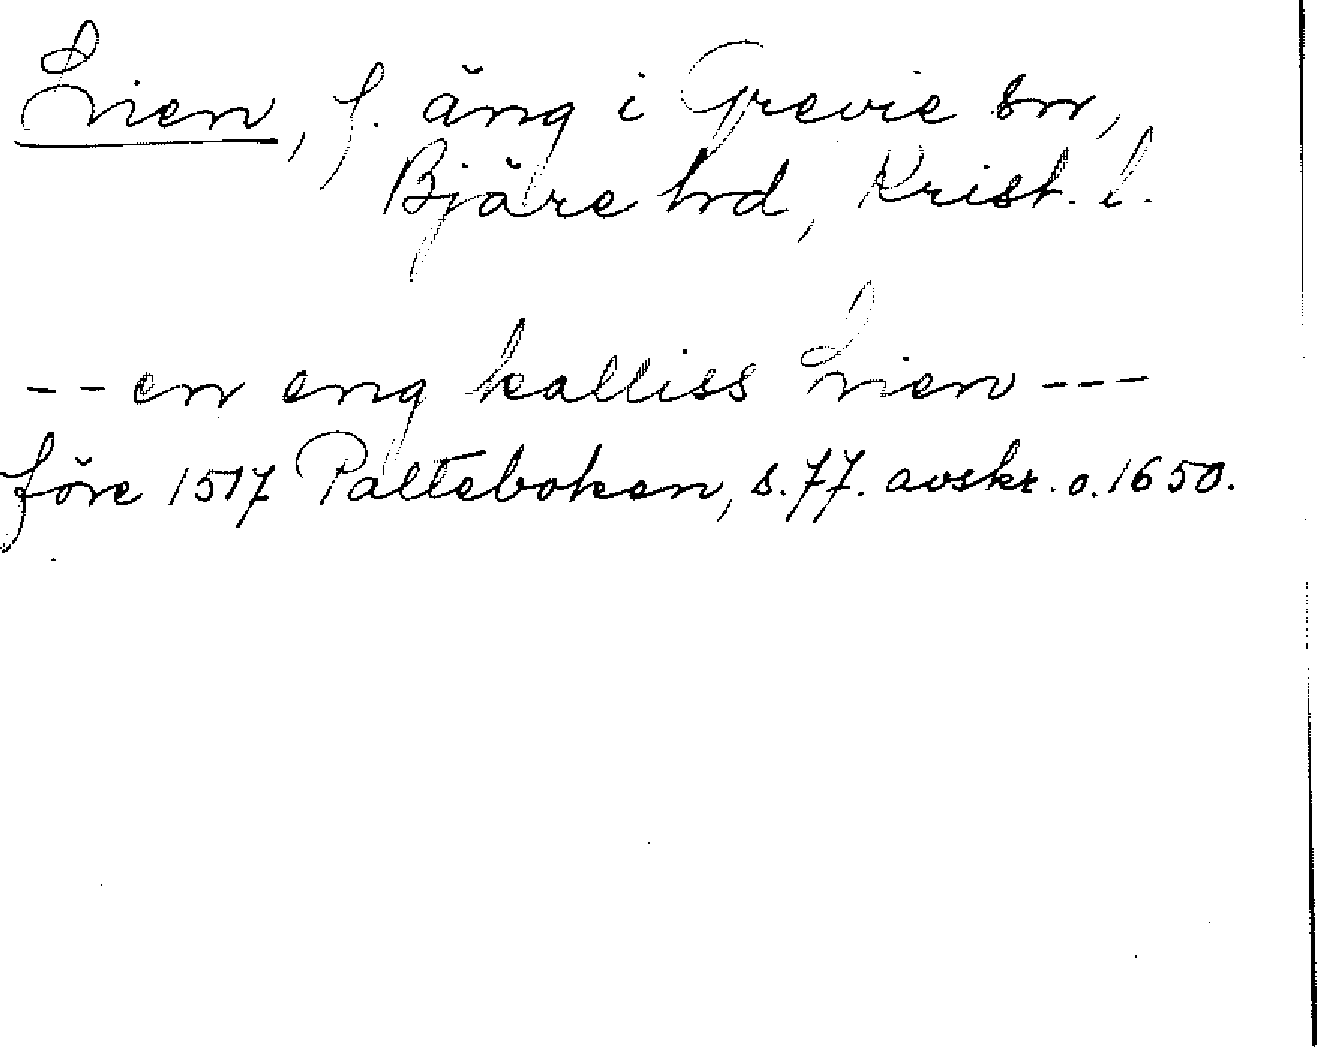 Lien, f. äng i Grevie sn,
Bjäre hd, Krist. l.
-- en eng kalliss Lien ---
före 1517 Palteboken, s. 77. avskr. o. 1650.